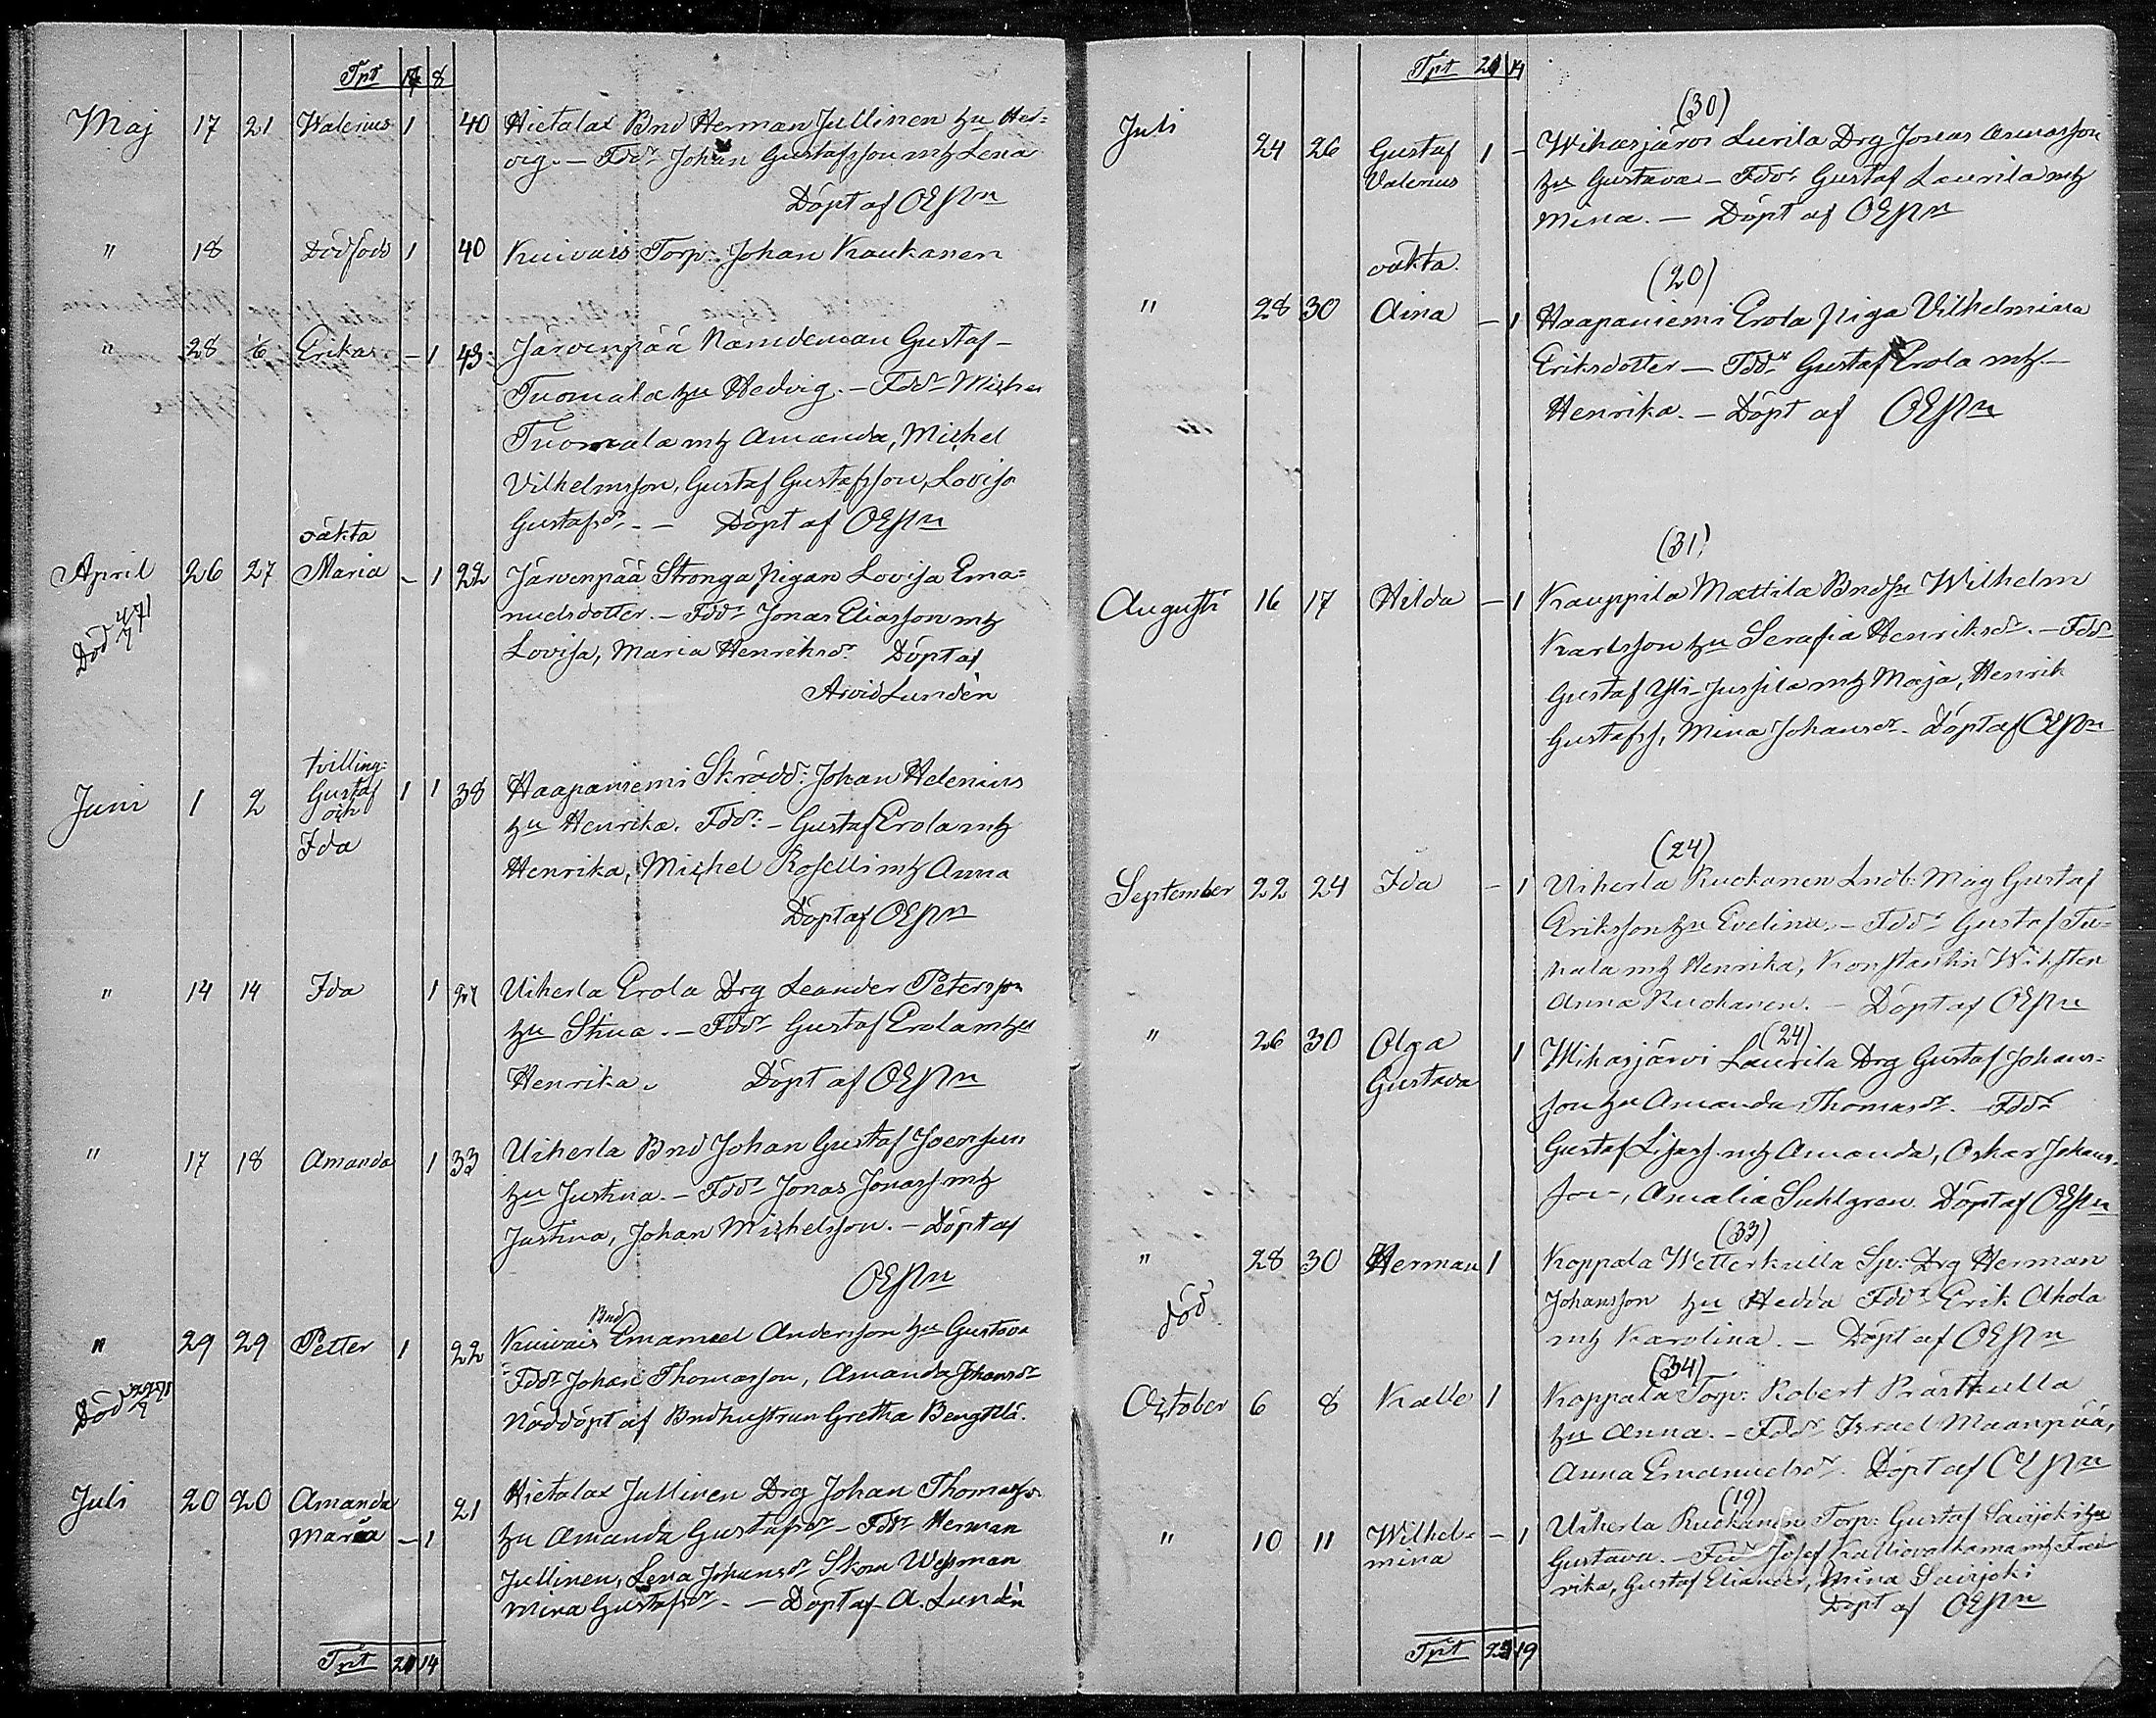 Tpt 17 8
Maj 17 21 Walerius 1 40 Hietalax Bnd Herman Jullinen hu Hed=
vig. — Fddr Johan Gustafsson mh Lena
Döpt af OEPn
" 18 Dödfödd 1 40 Kuivais Torp: Johan Kaukanen
" 28 1/6 Erika — 1 43 Järvenpää Nämndeman Gustaf
Tuomala hu Hedvig. — Fddr Michel
Tuomala mh Amanda, Michel
Vilhelmsson, Gustaf Gustafsson, Lovisa
Gustafsdr. — Döpt af OEPn
oäkta
April 26 27 Maria — 1 22 Järvenpää Stronga pigan Lovisa Ema=
nuelsdotter. — Fddr Jonas Eliasson mh
Död 4/7 71
Lovisa, Maria Henriksdr. Döpt af
Arvid Lundén
tvilling:
Juni 1 2 Gustaf och Ida 1 1 38 Haapaniemi Skrädd: Johan Helenius
hu Henrika. Fddr: — Gustaf Erola mh
Henrika, Michel Rosell mh Anna
Döpt af OEPn
" 14 14 Ida 1 27 Uiherla Erola Drg Leander Petersson
hu Stina. — Fddr Gustaf Erola mh
Henrika. Döpt af OEPn
" 17 18 Amanda 1 33 Uiherla Bnd Johan Gustaf
hu Justina. — Fddr Jonas Jonass. mh
Justina, Johan Michelsson. — Döpt af
OEPn
Bnd
" 29 29 Petter 1 22 Kuivais Emanuel Andersson hu Gustava
Fddr Johan Thomasson, Amanda Johansdr
Död 29/7 71
Nöddöpt af Bndhustrun Gretha Bengtilä.
Juli 20 20 Amanda Maria — 1 21 Hietalax Jullinen Drg Johan Thomasson
hu Amanda Gustafsdr — Fddr Herman
Jullinen, Lena Johansdr Skom Wessman
Mina Gustafsdr. — Döpt af A. Lundén
Tpt 21 14
Tpt 21 14
(30)
Juli 24 26 Gustaf Valerius 1 — Wihasjärvi Lurila Drg Jonas Jonasson
hu Gustava — Fddr Gustaf Laurila mh
Mina. — Döpt af OEPn
oäkta (20)
" 28 30 Aina — 1 Haapaniemi Erola piga Vilhelmina
Eriksdotter — Fddr Gustaf Erola mh
Henrika. — Döpt af OEPn
(31)
Augusti 16 17 Hilda — 1 Kauppila Mattila Bndsn Wilhelm
Karlsson hu Serafia Henriksdr. — Fddr
Gustaf Yli-Jussila mh Maja, Henrik
Gustafss, Mina Johansdr. Döpt af OEPn
(24)
September 22 24 Ida — 1 Uiherla Ruokanen Indb: Måg Gustaf
Eriksson hu Evelina. — Fddr Gustaf Tu=
kala mh Henrika, Konstantin Wiksten
Anna Ruokanen. — Döpt af OEPn
(24)
" 26 30 Olga Gustava 1 Wihasjärvi Laurila Drg Gustaf Johans=
son hu Amanda Thomasdr. — Fddr
Gustaf mh Amanda, Oskar Johans=
son, Amalia Sahlgren. Döpt af OEPn
(33)
" 28 30 Herman 1 Koppala Wetterkulla Sp: Drg Herman
död
Johansson hu Hedda Fddr Erik Ahola
mh Karolina. — Döpt af OEPn
(34)
October 6 8 Kalle 1 Koppala Torp: Robert Prästkulla
hu Anna. — Fddr Israel Maanpää,
Anna Emanuelsdr. Döpt af OEPn
(19)
" 10 11 Wilhel=mina — 1 Uiherla Ruokanen Torp: Gustaf Suijoki hu
Gustava. — Fddr Josef Kalliovalkama mh Fred
rika, Gustaf Eliander, Mina Suijoki
Döpt af OEPn
Tpt 24 19